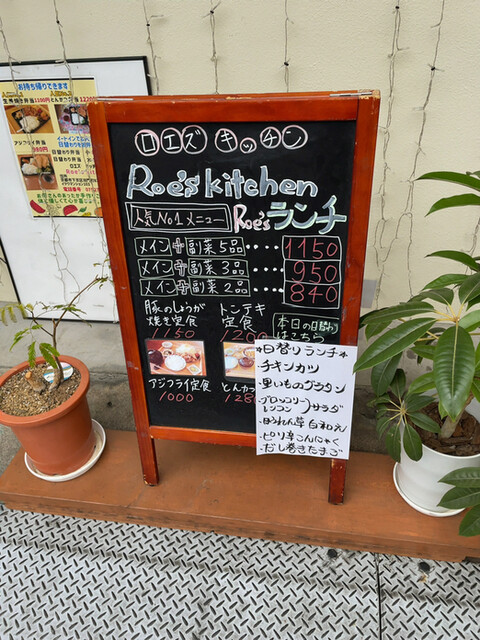 ロエズ キッチン
Roe's kitchen
人気No1メニュー
Roe'sランチ
メイン+副菜5品・・・・1150
メイン+副菜3品・・・・950
メイン+副菜2品・・・・840
豚のしょうが
焼き定食
1150
トンテキ
定食
本日の日替わり
はこちら
アジフライ定食
1000
とんカ
128
*日替りランチ*
・チキンカツ
・里いものグラタン
・ブロッコリー
レンコン サラダ
・ほうれん草 白和え
・ピリ辛こんにゃく
・だし巻きたまご
お持ち帰りできます
アジフライ弁当
980円